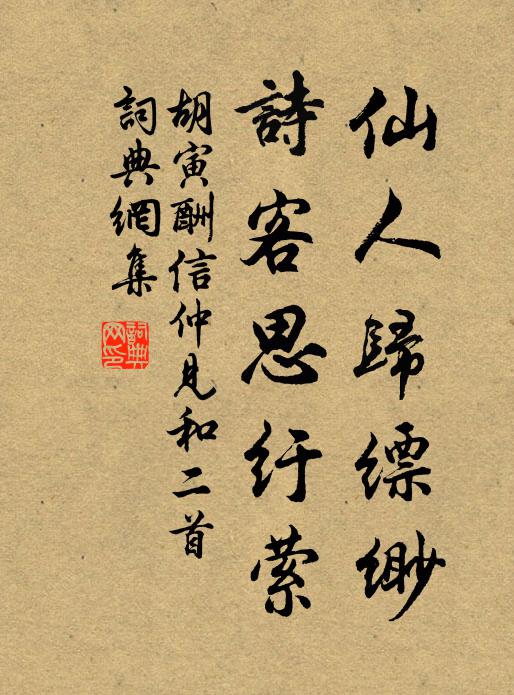 仙人歸縹緲
詩客思紆縈
胡寅酬信仲見和二首
詞典網集
詞典網印